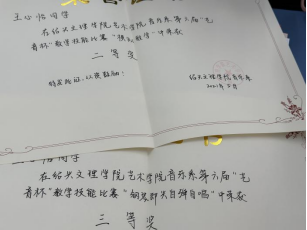 王心怡同学
在绍兴文理学院艺术学院音乐系第六届“艺
音杯”教学技能比赛“模拟教学”中荣获
二等奖
特发此证，以资鼓励！
绍兴文理学院音乐系
2021年5月
同学
在绍兴文理学院艺术学院音乐系第六届“艺
音杯”教学技能比赛“钢琴即兴自弹自唱”中荣获
三等奖